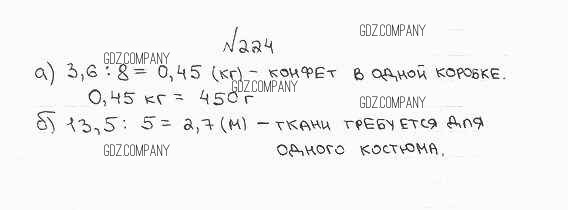 №224
GDZ.COMPANY
GDZ.COMPANY
а) 3,6 : 8 = 0,45 (кг) – конфет в одной коробке.
GDZ.COMPANY
0,45 кг = 450 г
GDZ.COMPANY
б) 13,5 : 5 = 2,7 (м) – ткани требуется для
GDZ.COMPANY
одного костюма.